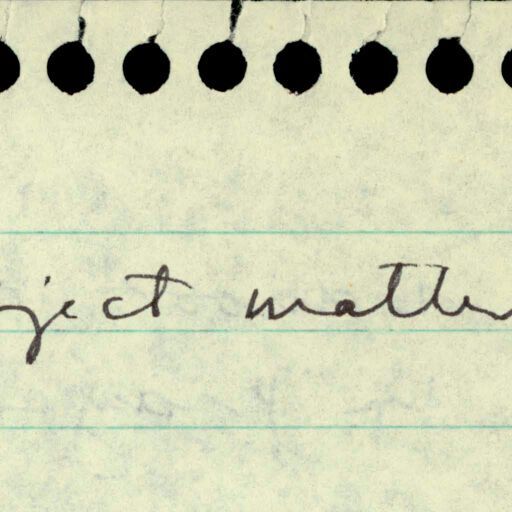 ject matter